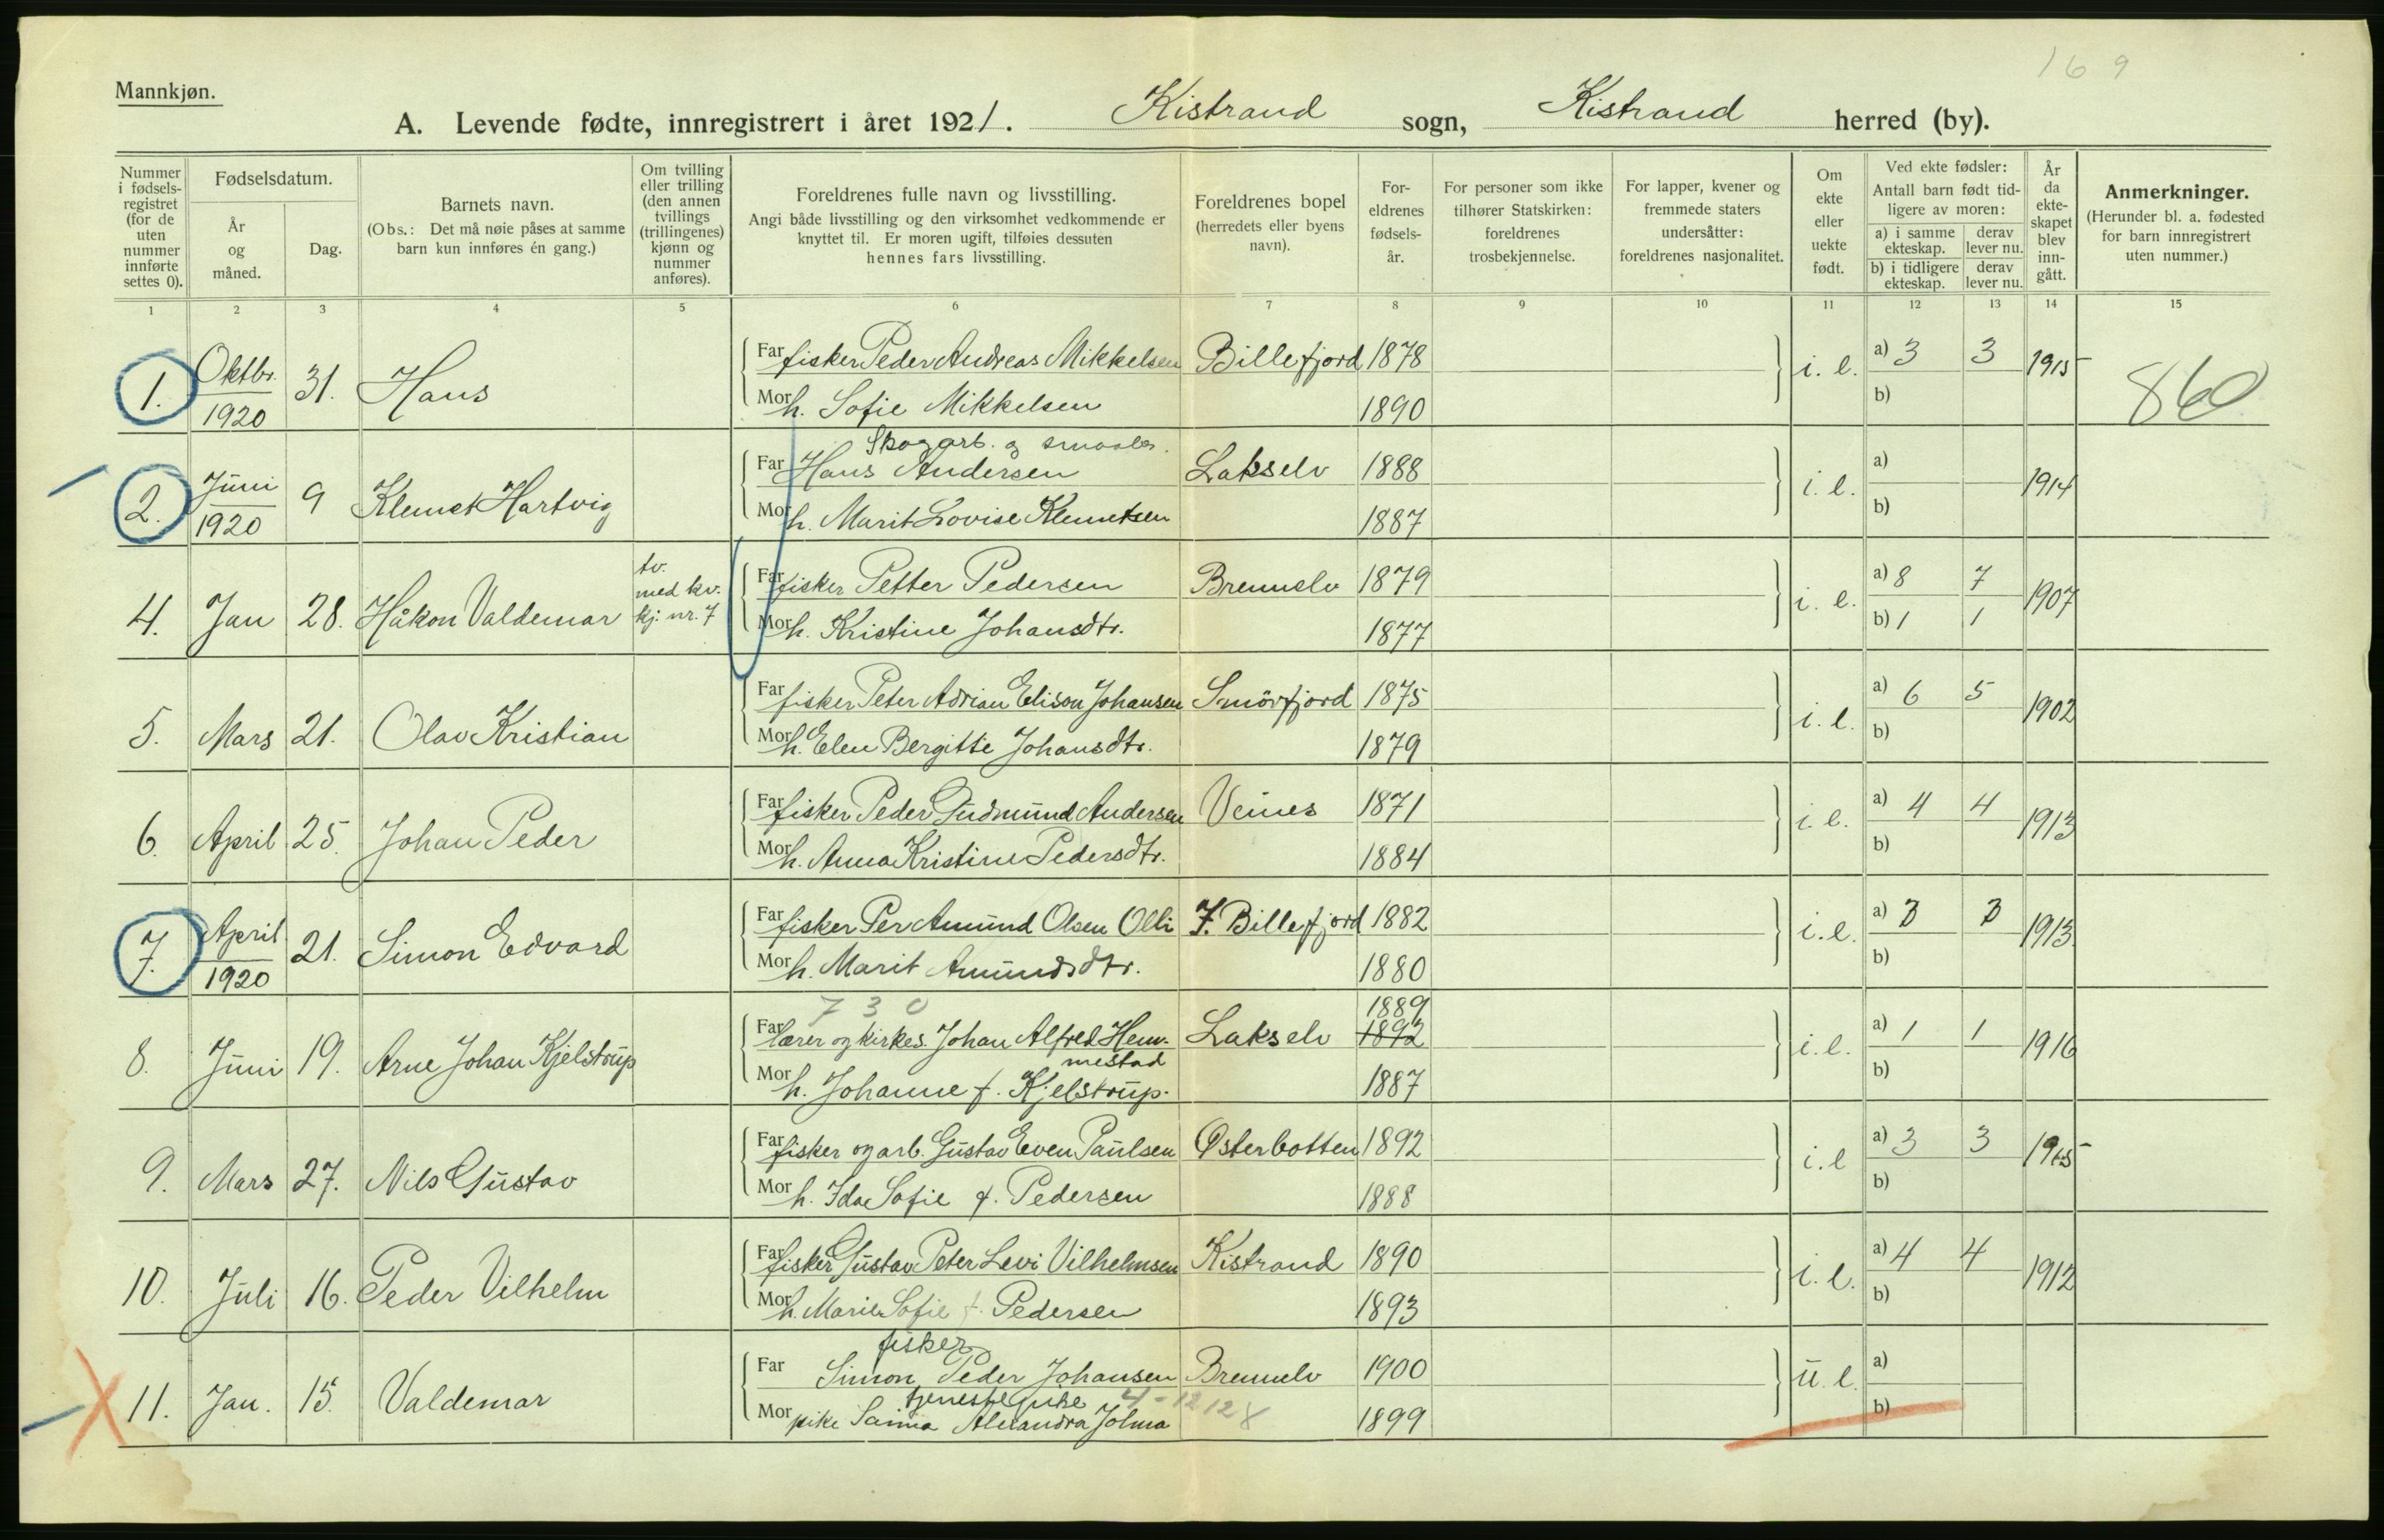 169
Mannkjøn.
A. Levende fødte, innregistrert i året 1921. Kistrand sogn, Kistrand herred (by).
Nummer i fødsels-registret (for de uten nummer innførte settes 0).
Fødselsdatum.
År og måned.
Dag.
Barnets navn.
(Obs.: Det må nøie påses at samme barn kun innføres én gang.)
Om tvilling eller trilling (den annen tvillings (trillingenes) kjønn og nummer anføres).
Foreldrenes fulle navn og livsstilling.
Angi både livsstilling og den virksomhet vedkommende er knyttet til. Er moren ugift, tilføies dessuten hennes fars livsstilling.
Foreldrenes bopel (herredets eller byens navn).
For-eldrenes fødsels-år.
For personer som ikke tilhører Statskirken: foreldrenes trosbekjennelse.
For lapper, kvener og fremmede staters undersåtter: foreldrenes nasjonalitet.
Om ekte eller uekte født.
Ved ekte fødsler:
Antall barn født tid-ligere av moren:
a) i samme ekteskap. derav lever nu.
b) i tidligere ekteskap. derav lever nu.
År da ekte-skapet blev inn-gått.
Anmerkninger.
(Herunder bl. a. fødested for barn innregistrert uten nummer.)
1 2 3 4 5 6 7 8 9 10 11 12 13 14 15
1. Oktbr. 1920 31. Hans Far fisker Peder Andreas Mikkelsen Billefjord 1878 i. e. a) 3 3 1915 860
Mor h. Sofie Mikkelsen 1890 b)
Skogarb. og
2. Juni 1920 9 Klemet Hartvig Far Hans Andersen Lakselv 1888 i. e. a) 1914
Mor h. Marit Lovise Klemetsen 1887 b)
4. Jan 28. Håkon Valdemar tv. med kv. kj. nr. 7 Far fisker Petter Pedersen Brennelv 1879 i. e. a) 8 7 1907
Mor h. Kristine Johansdtr. 1877 b) 1 1
5. Mars 21. Olav Kristian Far fisker Peter Adrian Elison Johansen Smörfjord 1875 i. e. a) 6 5 1902
Mor h. Elen Bergitte Johansdtr. 1879 b)
6. April 25. Johan Peder Far fisker Peder Gudmund Andersen Veines 1871 i. e. a) 4 4 1913
Mor h. Anna Kristine Pedersdtr. 1884 b)
7. April 1920 21. Simon Edvard Far fisker Per Amund Olsen Olli I. Billefjord 1882 i. e. a) 3 3 1913
Mor h. Marit Amundsdtr. 1880 b)
730 1889
8. Juni 19. Arne Johan Kjelstrup Far lærer og kirkes. Johan Alfred Hem-mestad Lakselv 1892 i. e. a) 1 1 1916
Mor h. Johanne f. Kjelstrup. 1887 b)
9. Mars 27. Nils Gustav Far fisker og arb. Gustav Even Paulsen Østerbotten 1892 i. e a) 3 3 1915
Mor h. Ida Sofie f. Pedersen 1888 b)
10. Juli 16. Peder Vilhelm Far fisker Gustav Peter Levi Vilhelmsen Kistrand 1890 i. e. a) 4 4 1912
Mor h. Marie Sofie f. Pedersen 1893 b)
fisker
11. Jan. 15. Valdemar Far Simon Peder Johansen Brennelv 1900 u. e. a)
tjenestepike 4-12128
Mor pike Saima Alexandra Jolma 1899 b)